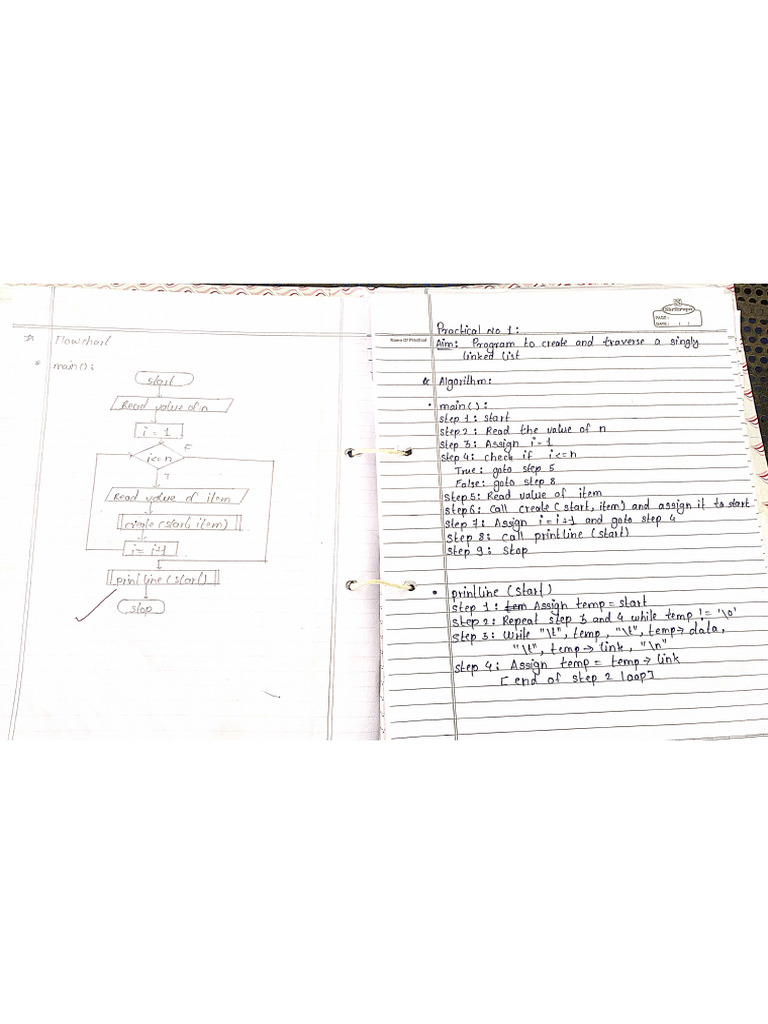 Flowchart
main():
start
Read value of n
i = 1
i<=n
F
T
Read value of item
create(start, item)
i = i+1
printline(start)
stop
Shrikrupa
PAGE:
DATE: / /
Name Of Practical
Practical No 1:
Aim: Program to create and traverse a singly
linked list
Algorithm:
• main():
step 1: start
step 2: Read the value of n
step 3: Assign i=1
step 4: check if i<=n
True: goto step 5
False: goto step 8
step5: Read value of item
step6: call create(start, item) and assign it to start
step 7: Assign i=i+1 and goto step 4
step 8: call printline(start)
step 9: stop
• printline (start)
step 1: Assign temp = start
step 2: Repeat step 3 and 4 while temp != '\0'
step 3: Write "\t", temp, "\t", temp→data,
"\t", temp→link, "\n"
step 4: Assign temp = temp→link
[end of step 2 loop]